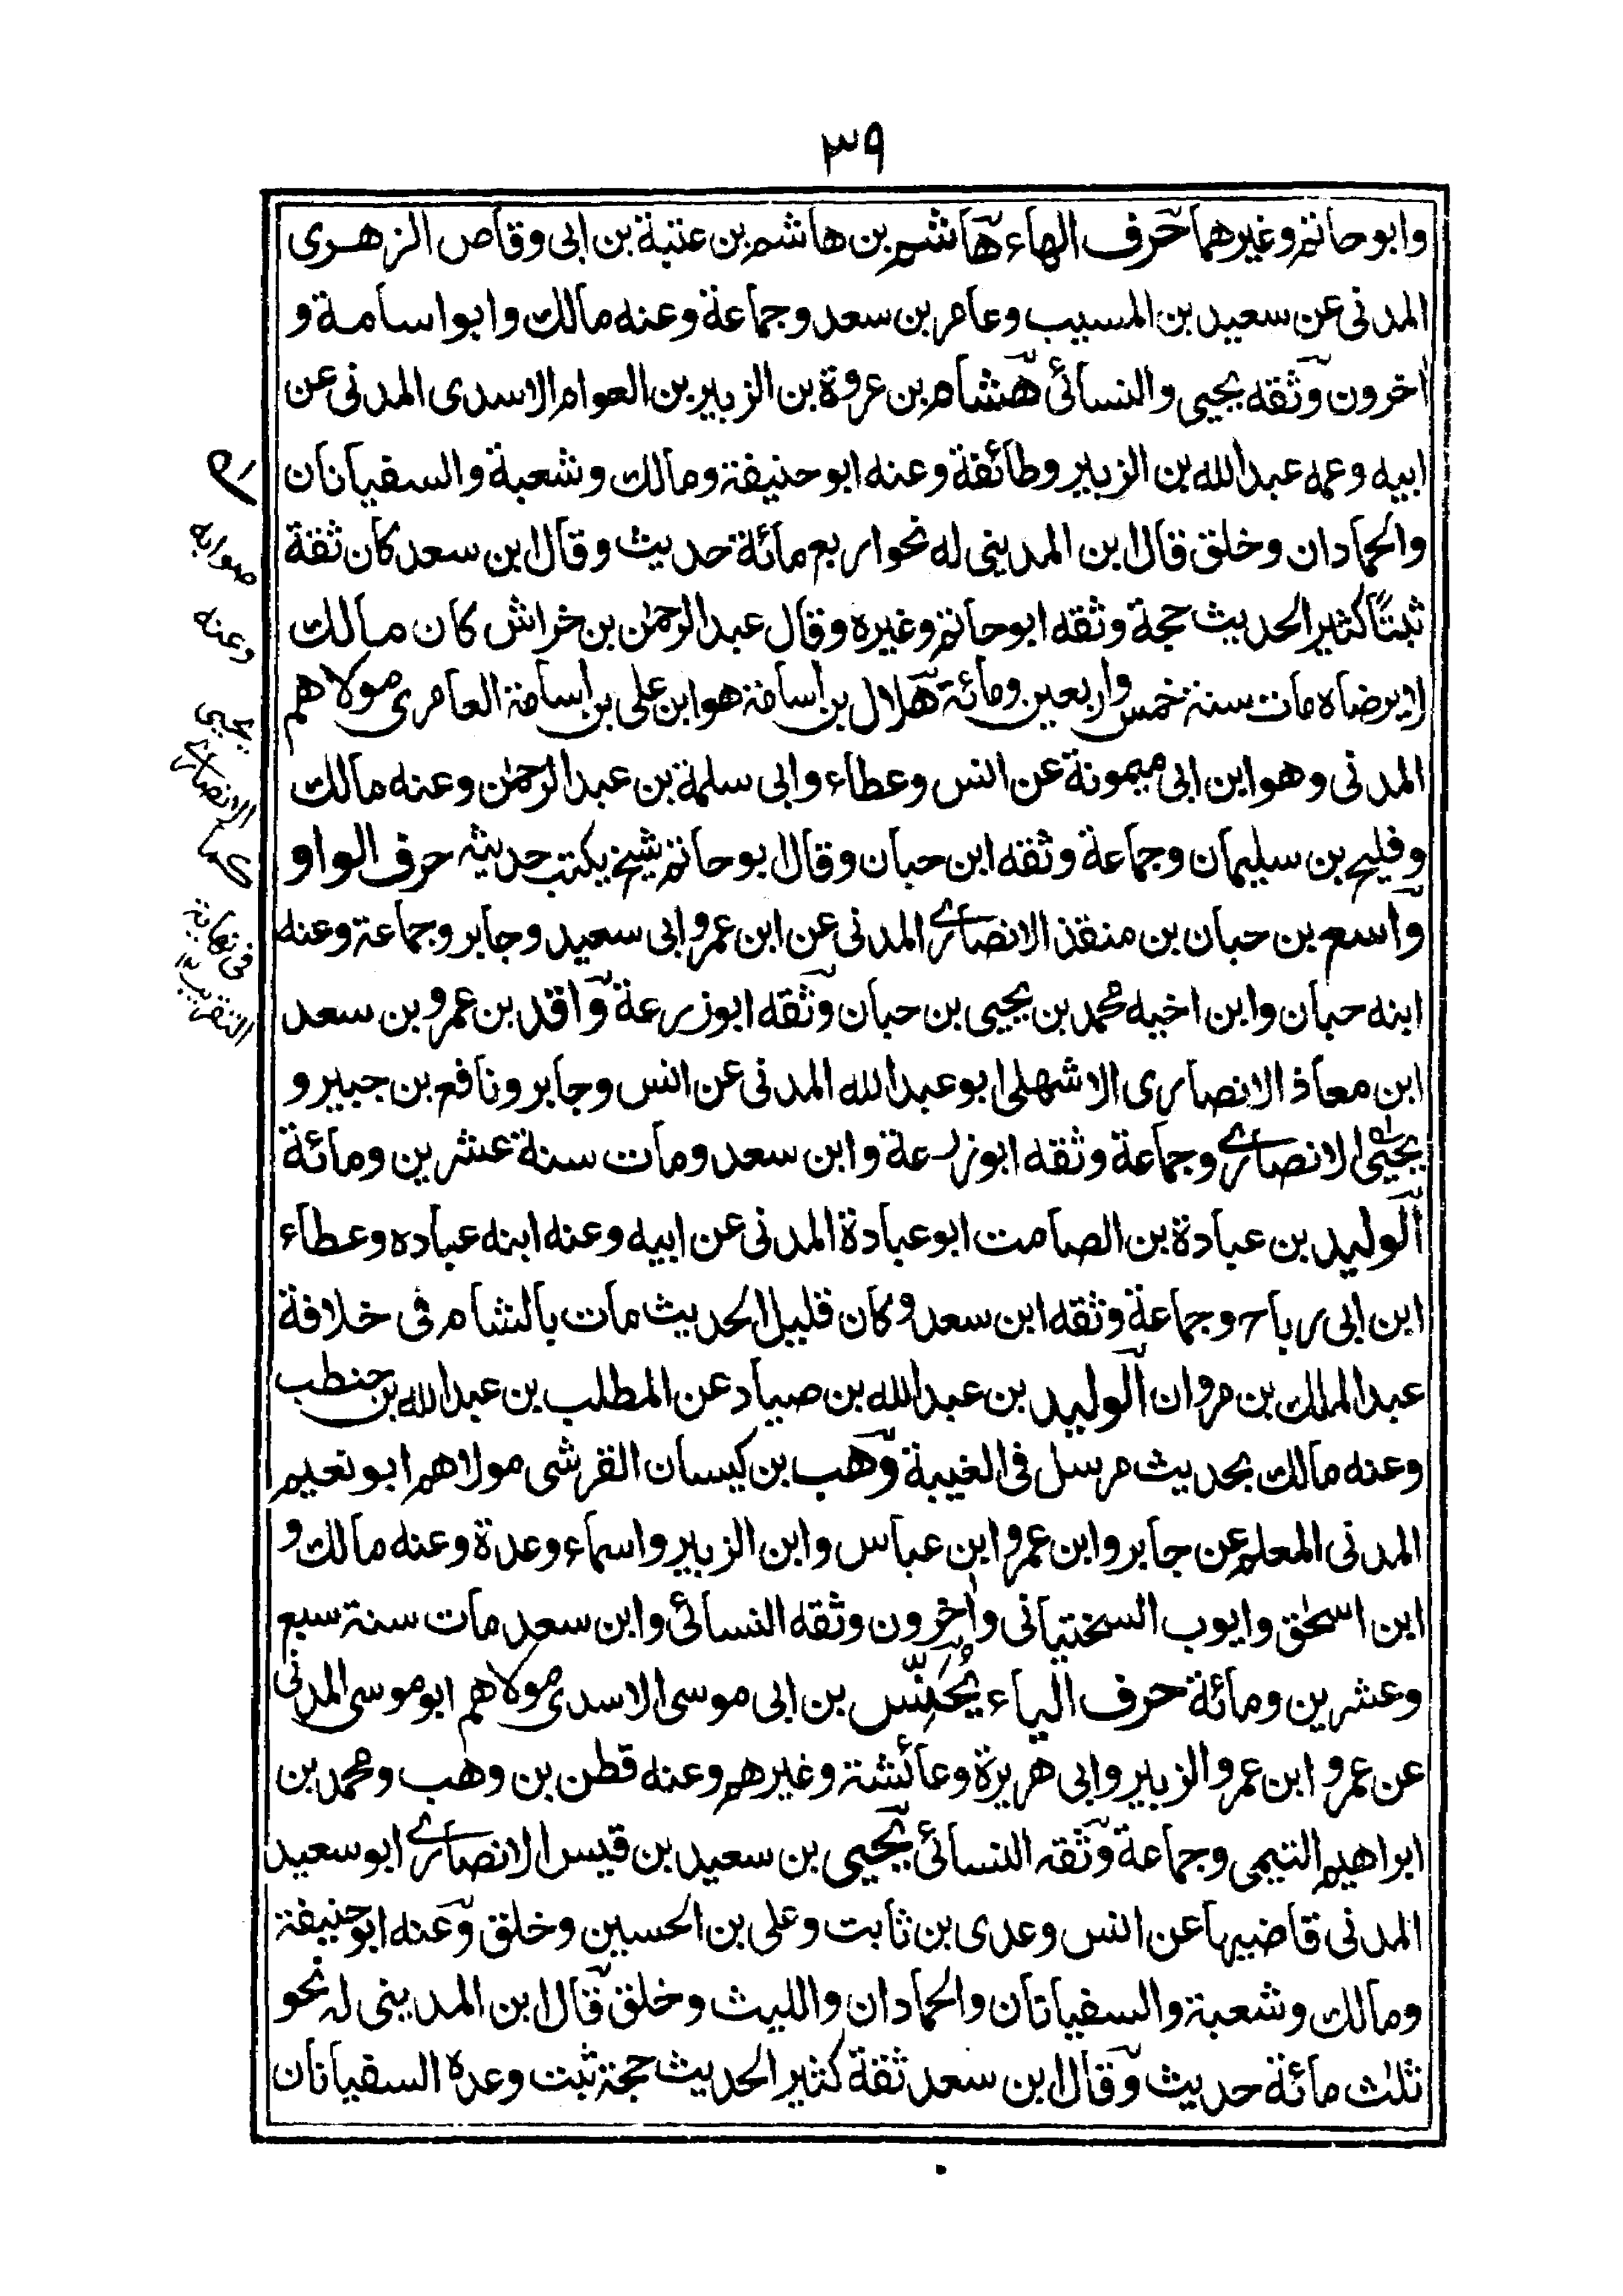 ٣٩
وابوحاتم وغيرهما حرف الهاء هاشم بن هاشم بن عتبة بن ابى وقاص الزهرى
المدنى عن سعيد بن المسيب وعامر بن سعد وجماعة وعنه مالك وابو اسامة و
اخرون وثقه يحيى والنسائى هشام بن عروة بن الزبير بن العوام الاسدى المدنى عن
ابيه وعمه عبدالله بن الزبير وطائفة وعنه ابو حنيفة ومالك وشعبة والسفيانان
والحمادان وخلق قال ابن المدينى له نحو اربع مائة حديث وقال ابن سعد كان ثقة
ثبتًا كثير الحديث حجة وثقه ابوحاتم وغيره وقال عبدالرحمٰن بن خراش كان مالك
لا يرضاه مات سنة خمس واربعين ومائة هلال بن اسامة هو ابن على بن اسامة العامرى مولاهم
المدنى وهو ابن ابى ميمونة عن انس وعطاء وابى سلمة بن عبدالرحمٰن وعنه مالك
وفليح بن سليمان وجماعة وثقه ابن حبان وقال ابوحاتم شيخ يكتب حديثه حرف الواو
واسع بن حبان بن منقذ الانصارى المدنى عن ابن عمر وابى سعيد وجابر وجماعة وعنه
ابنه حبان وابن اخيه محمد بن يحيى بن حبان وثقه ابوزرعة واقد بن عمرو بن سعد
ابن معاذ الانصارى الاشهلى ابوعبدالله المدنى عن انس وجابر ونافع بن جبير و
يحيى الانصارى وجماعة وثقه ابوزرعة وابن سعد ومات سنة عشرين ومائة
الوليد بن عبادة بن الصامت ابوعبادة المدنى عن ابيه وعنه ابنه عباده وعطاء
ابن ابى رباح وجماعة وثقه ابن سعد وكان قليل الحديث مات بالشام فى خلافة
عبدالملك بن مروان الوليد بن عبدالله بن صياد عن المطلب بن عبدالله بن حنطب
وعنه مالك بحديث مرسل فى الغيبة وهب بن كيسان القرشى مولاهم ابو نعيم
المدنى المعلم عن جابر وابن عمر وابن عباس وابن الزبير واسماء وعدة وعنه مالك و
ابن اسحٰق وايوب السختيانى واٰخرون وثقه النسائى وابن سعد مات سنة سبع
وعشرين ومائة حرف الياء يُحَنِّس بن ابى موسى الاسدى مولاهم ابو موسى المدنى
عن عمر و ابن عمر والزبير وابى هريرة وعائشة وغيرهم وعنه قطن بن وهب ومحمد بن
ابراهيم التيمى وجماعة وثقه النسائى يحيى بن سعيد بن قيس الانصارى ابو سعيد
المدنى قاضيها عن انس وعدى بن ثابت وعلى بن الحسين وخلق وعنه ابو حنيفة
ومالك وشعبة والسفيانان والحمادان والليث وخلق قال ابن المدينى له نحو
ثلٰث مائة حديث وقال ابن سعد ثقة كثير الحديث حجة ثبت وعده السفيانان
صوابه
وعنه
يحيى
الانصارى
كما
فى تهذيب